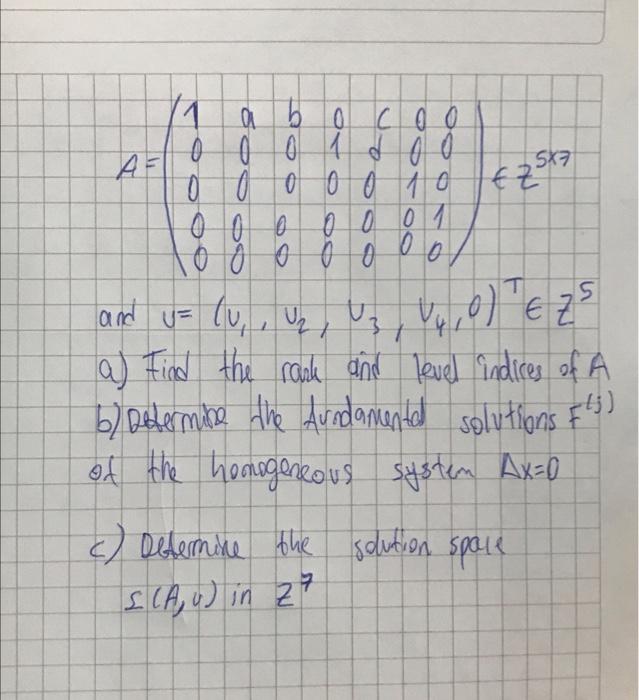 1 a b 0 c 0 0
0 0 0 1 d 0 0
A= 0 0 0 0 0 1 0 ∈ Z^5x7
0 0 0 0 0 0 1
0 0 0 0 0 0 0
and v= (v₁, v₂, v₃, v₄, 0)^T ∈ Z^5
a) Find the rank and level indices of A
b) Determine the fundamental solutions F^(j)
of the homogeneous system Ax=0
c) Determine the solution space
I (A,v) in Z^7